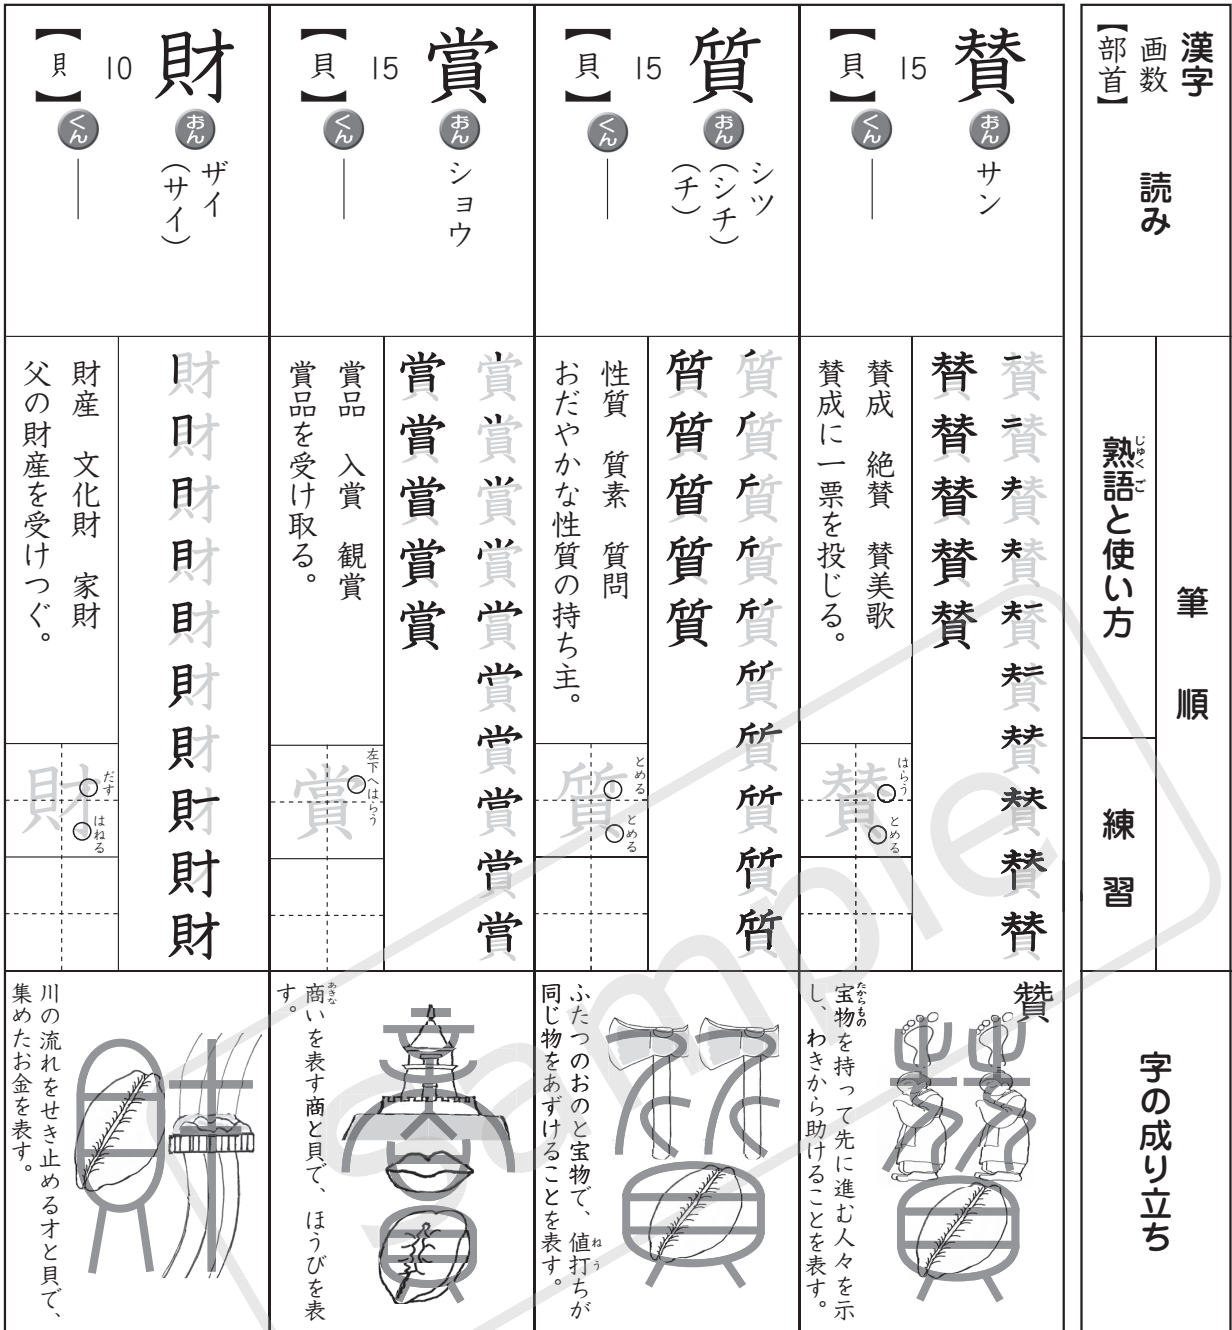 漢字
画数
【部首】
読み
筆順
熟語と使い方
じゅくご
練習
字の成り立ち
賛
15
【貝】
おん
サン
くん
賛賛賛賛賛賛賛賛賛賛
賛賛賛賛賛
賛成 絶賛 賛美歌
賛成に一票を投じる。
賛
はらう
とめる
贊
宝物を持って先に進む人々を示
たからもの
し、わきから助けることを表す。
質
15
【貝】
おん
シツ
(シチ)
(チ)
くん
質質質質質質質質質質
質質質質質
性質 質素 質問
おだやかな性質の持ち主。
質
とめる
とめる
ふたつのおのと宝物で、値打ちが
ねう
同じ物をあずけることを表す。
賞
15
【貝】
おん
ショウ
くん
賞賞賞賞賞賞賞賞賞賞
賞賞賞賞賞
賞品 入賞 観賞
賞品を受け取る。
賞
左下へはらう
商いを表す商と貝で、ほうびを表
あきな
す。
財
10
【貝】
おん
ザイ
(サイ)
くん
財財財財財財財財財財
財産 文化財 家財
父の財産を受けつぐ。
財
だす
はねる
川の流れをせき止める才と貝で、
集めたお金を表す。
Sample